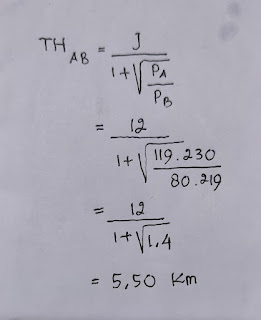 TH AB = J / 1+√ PA / PB
= 12 / 1+√ 119.230 / 80.219
= 12 / 1+√1,4
= 5,50 Km